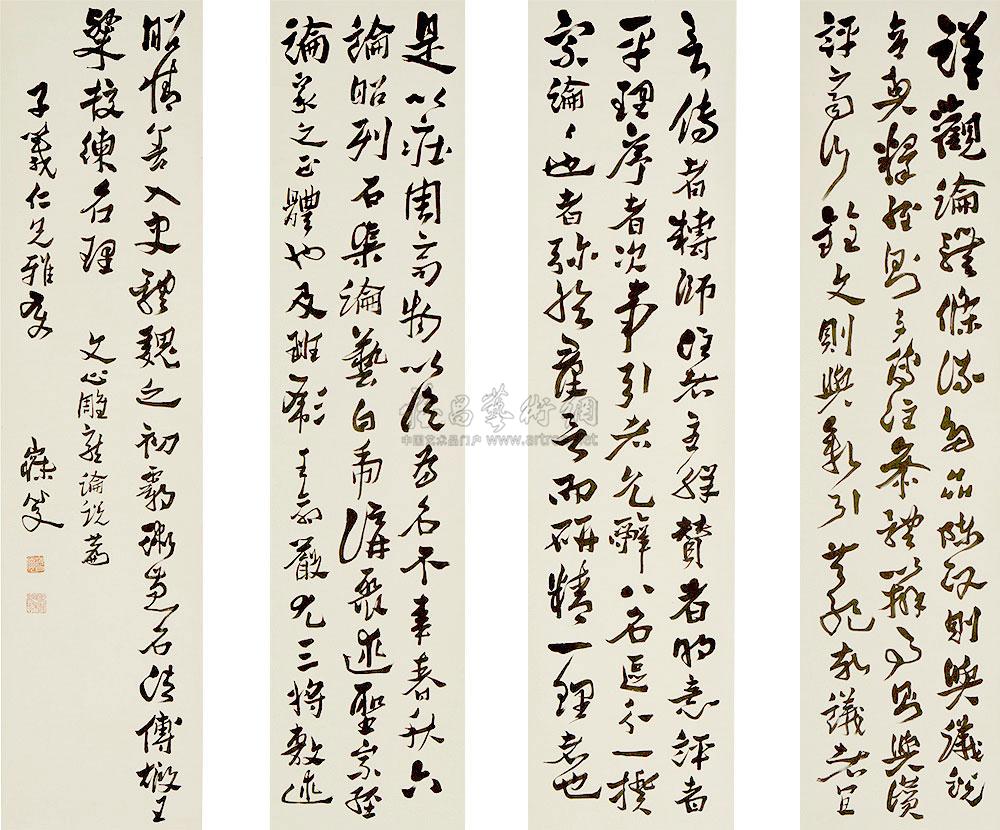 詳觀論體條流多品陳政則與議説
合契釋經則與傳注參體辨事則與讚
評齊行銓文則與敘引共紀故議者宜
言傳者轉師注者主解贊者明意評者
平理序者次事引者允辭八名區分一揆
宗論〻也者弥綸羣言而研精一理者也
是以莊周齊物以論為名不韋春秋六
論昭列石渠論藝白虎講聚述聖宗經
論家之正體也及班彪王命嚴尤三將敷述
昭情善入史體魏之初霸術兼名法傅嘏王
粲校練名理
文心雕龍論説篇
子羲仁兄雅
寐叟
雅昌藝術網
中国艺术品门户 www.artron.net